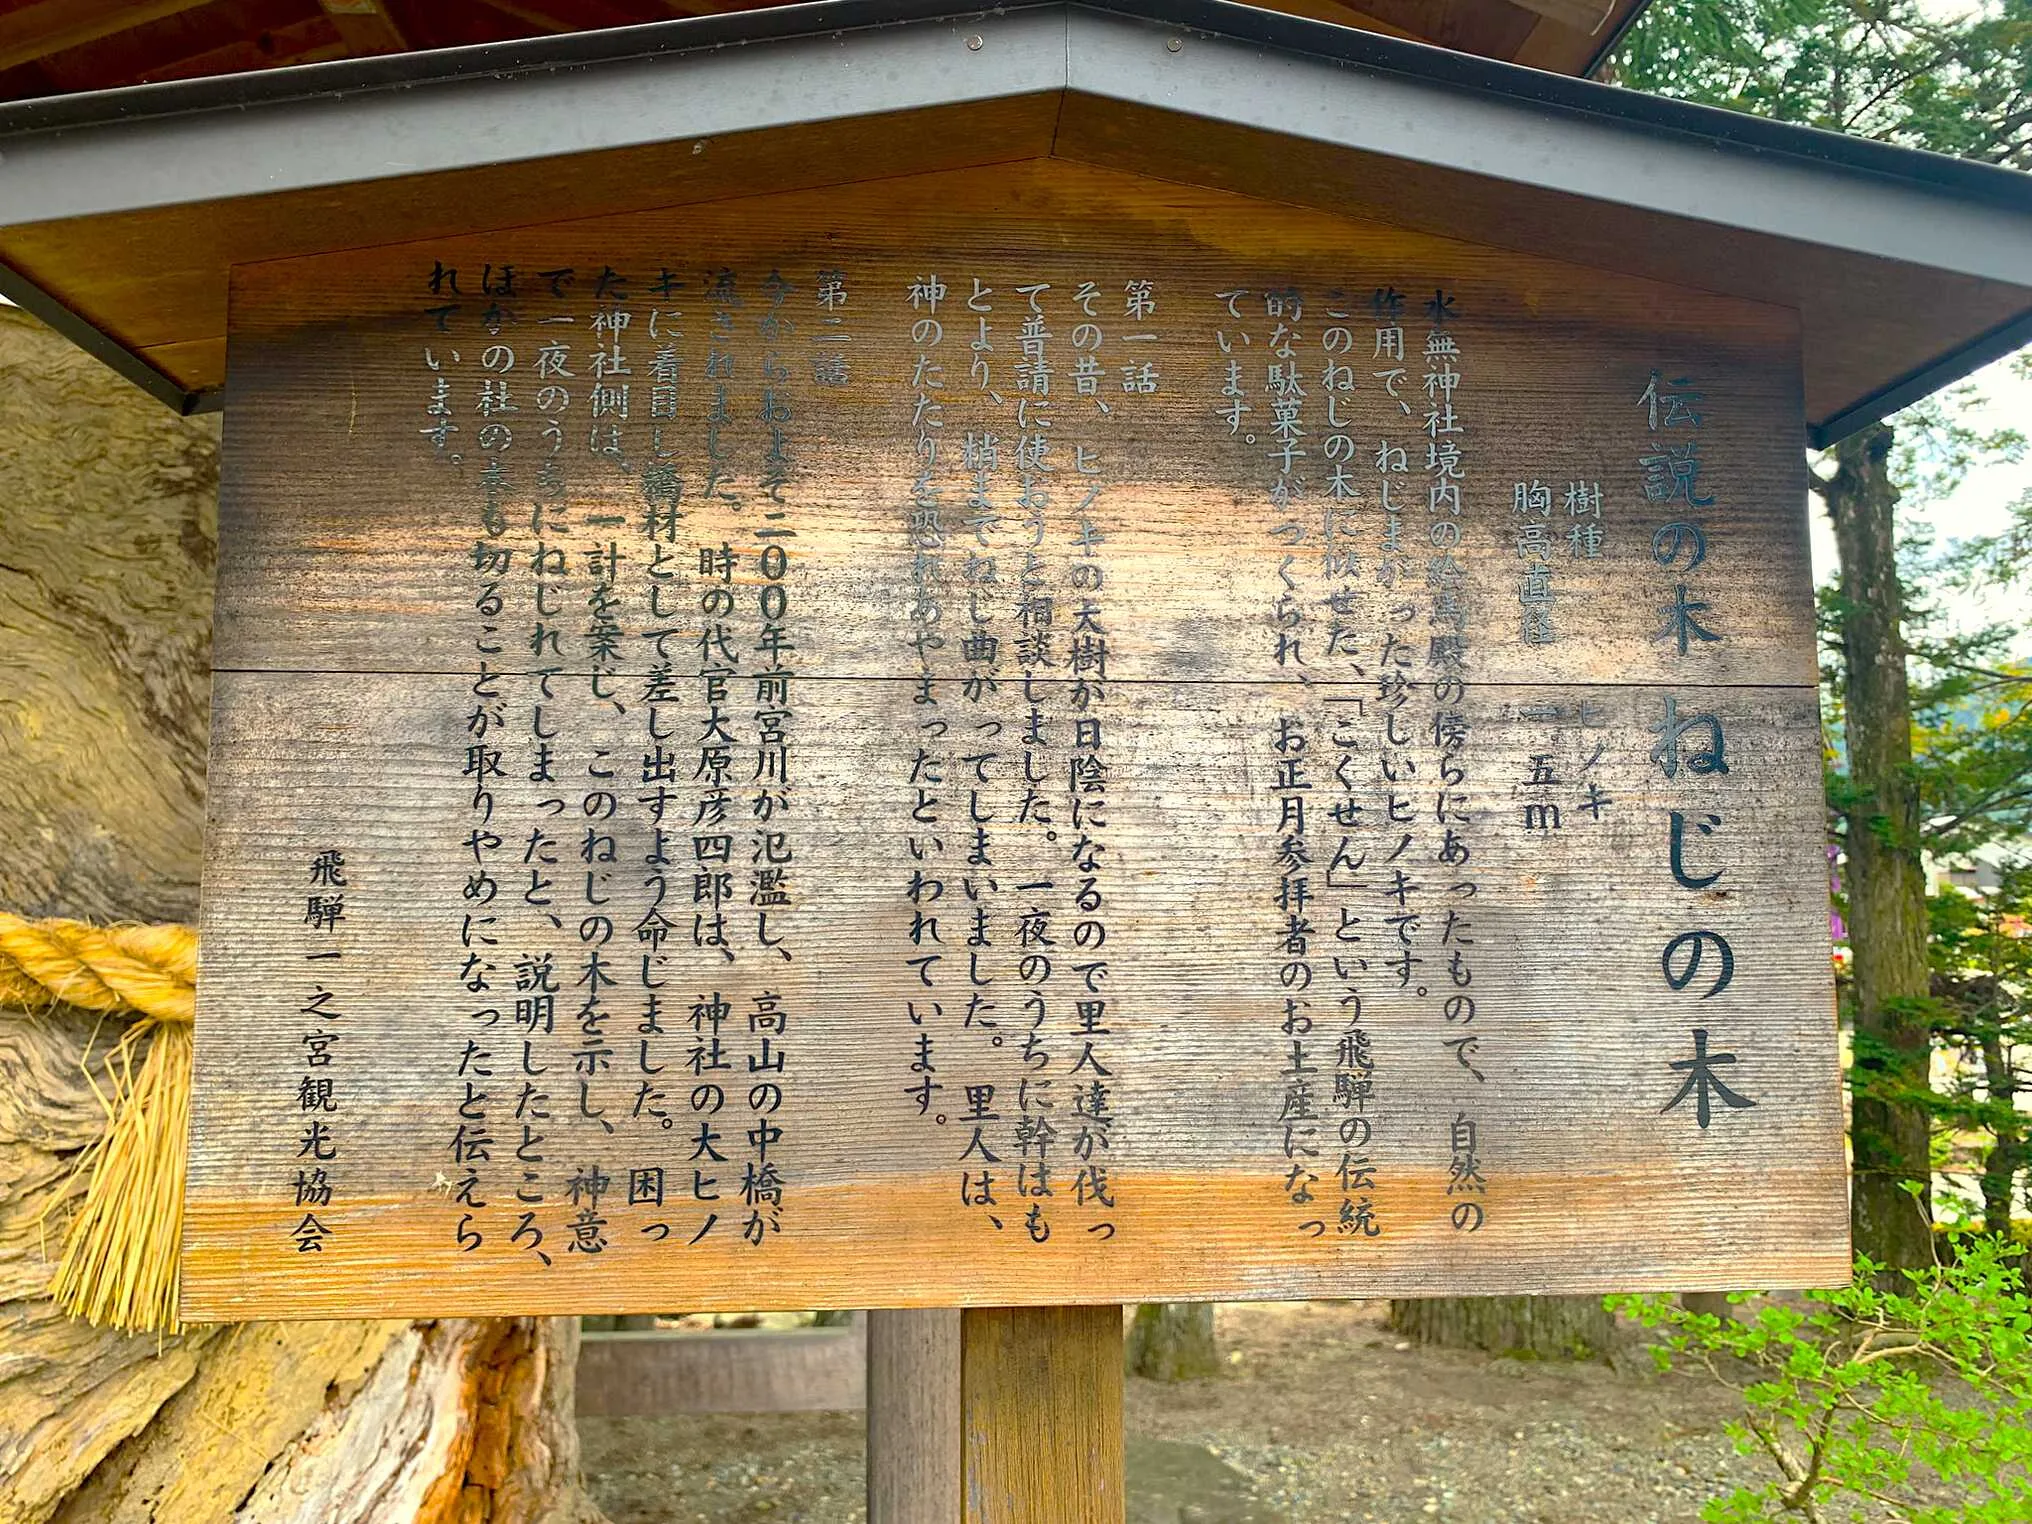 伝説の木 ねじの木
樹種 ヒノキ
胸高直径 一.五m
水無神社境内の絵馬殿の傍らにあったもので、自然の
作用で、ねじまがった珍しいヒノキです。
このねじの木に似せた、「こくせん」という飛騨の伝統
的な駄菓子がつくられ、お正月参拝者のお土産になっ
ています。
第一話
その昔、ヒノキの大樹が日陰になるので里人達が伐っ
て普請に使おうと相談しました。一夜のうちに幹はも
とより、梢までねじ曲がってしまいました。里人は、
神のたたりを恐れあやまったといわれています。
第二話
今からおよそ二〇〇年前宮川が氾濫し、高山の中橋が
流されました。時の代官大原彦四郎は、神社の大ヒノ
キに着目し橋材として差し出すよう命じました。困っ
た神社側は、一計を案じ、このねじの木を示し、神意
で一夜のうちにねじれてしまったと、説明したところ、
ほかの社の木も切ることが取りやめになったと伝えら
れています。
飛騨一之宮観光協会